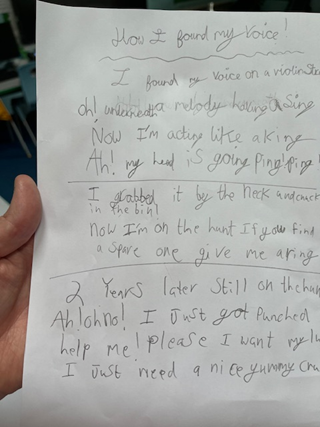 How I found my voice!
I found my voice on a violin
oh! underneath a melody having a sing
Now I'm acting like a king
Ah! my head is going ping! ping!
I grabbed it by the neck and
in the bin!
now I'm on the hunt If you find
a spare one give me a ring
2 Years later Still on the
Ah! oh no! I Just got Punched
help me! please I want my
I Just need a nice yummy